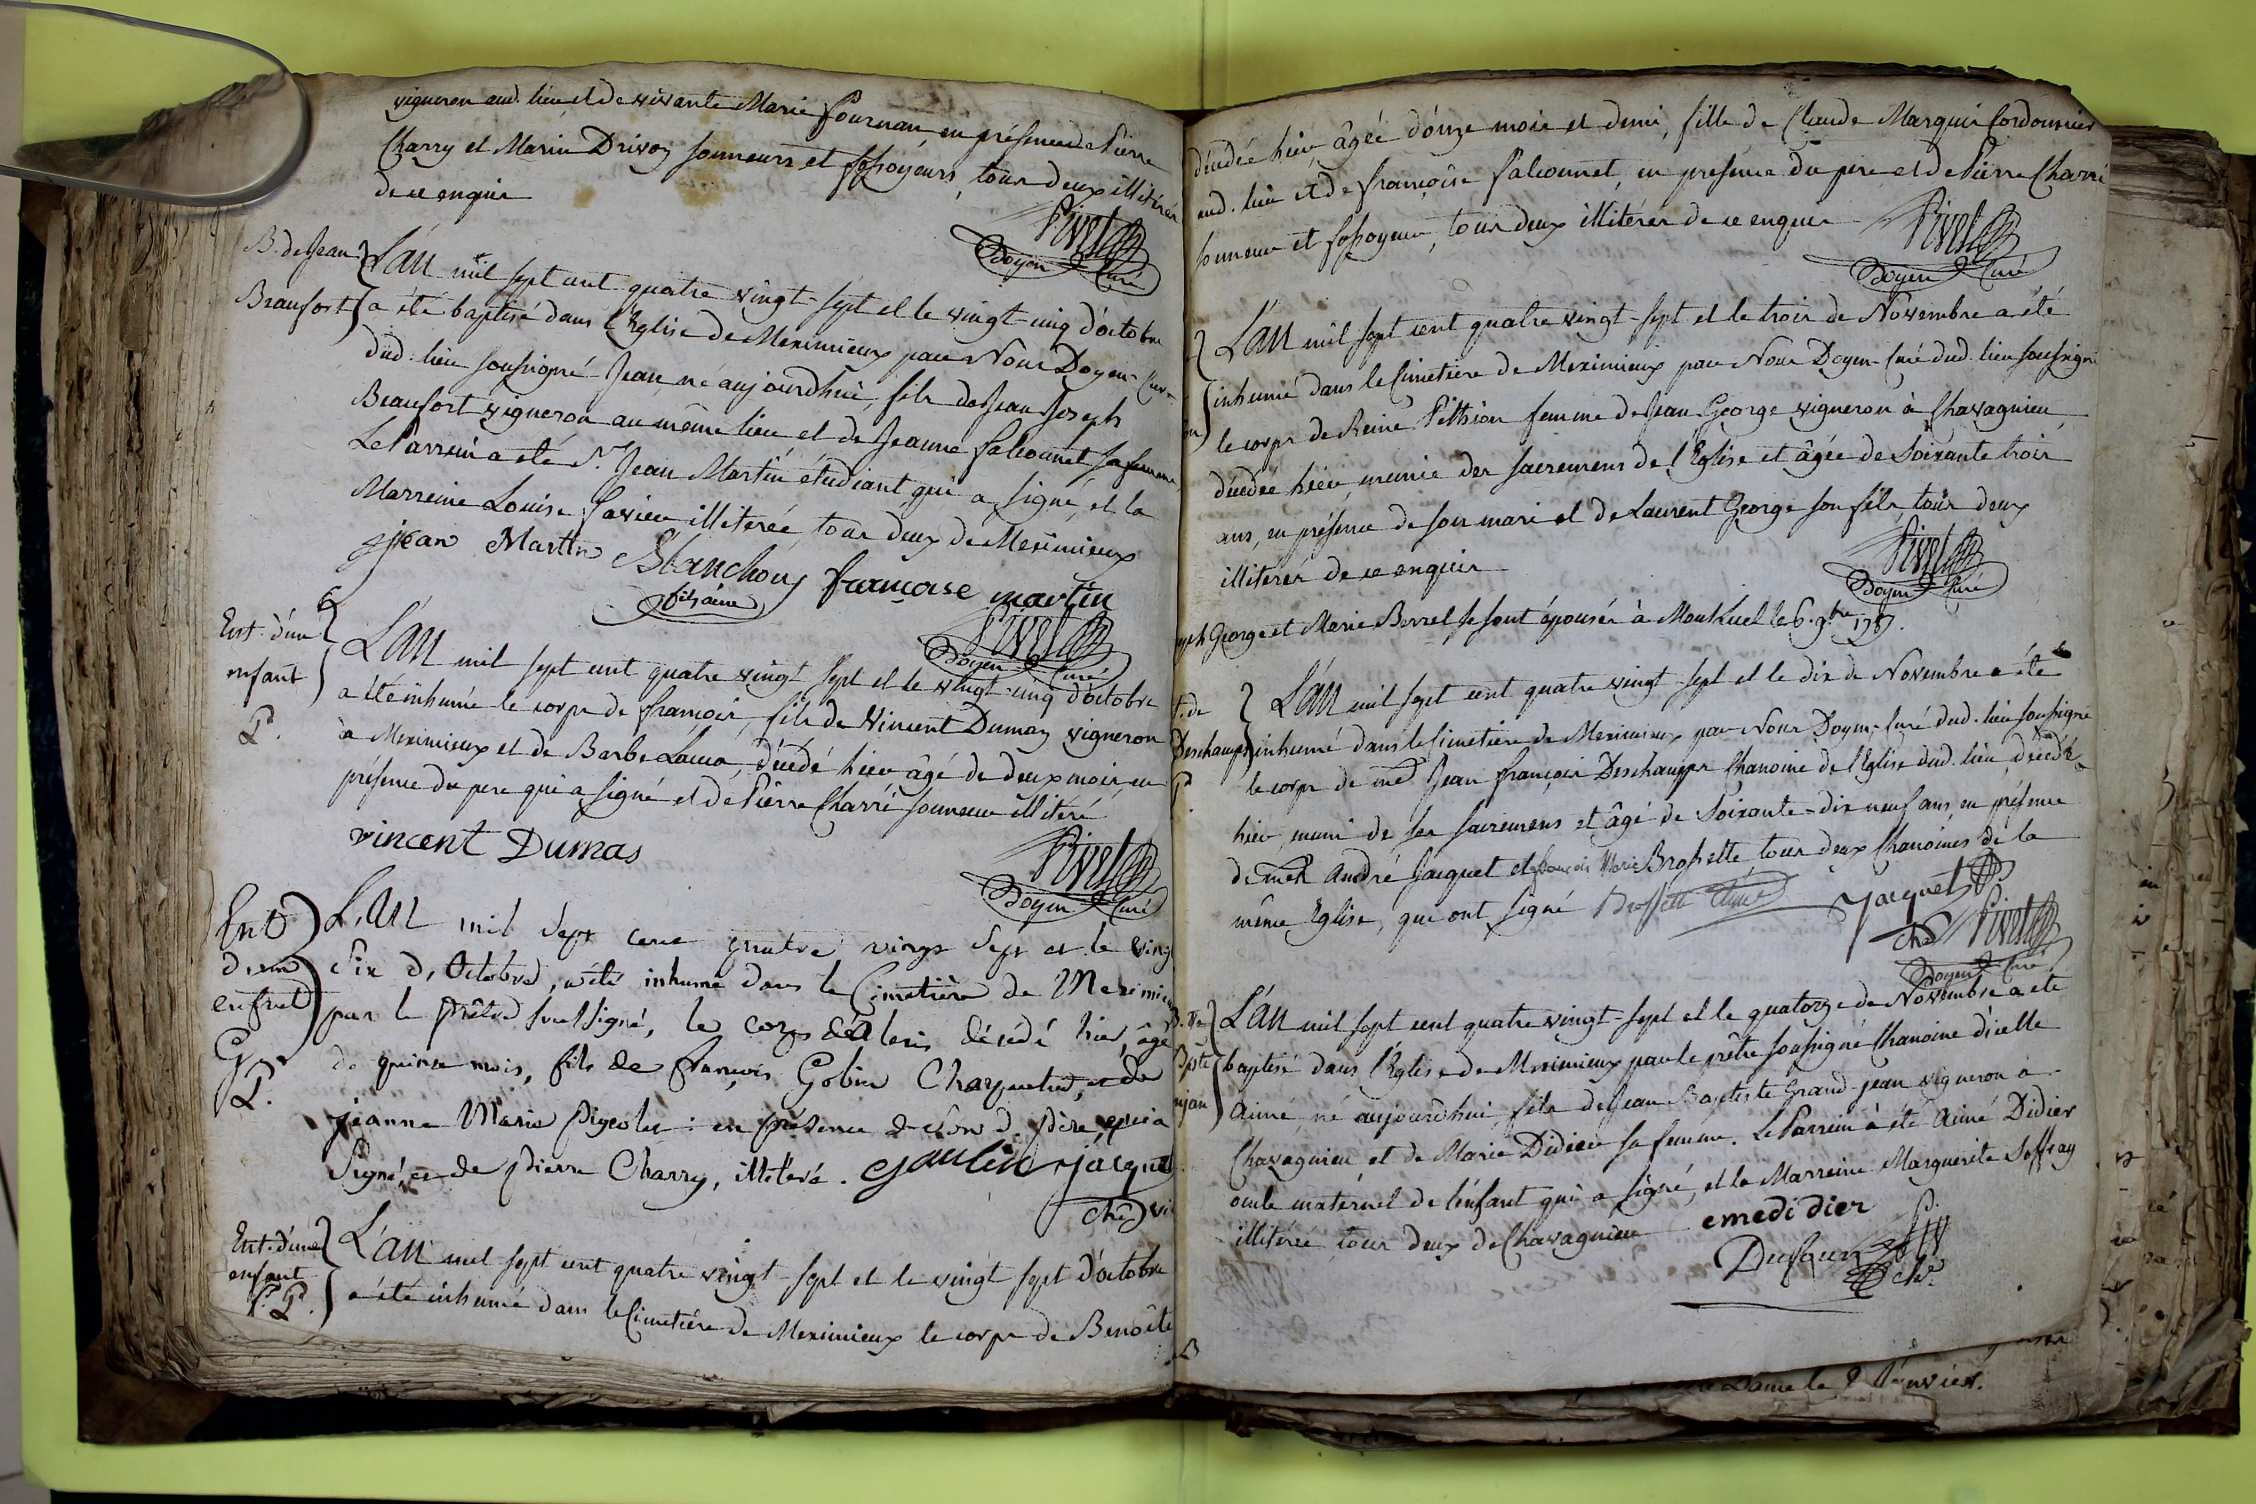 vigneron aud. lieu et de vivante Marie fournan, en présence de Pierre
Charry et Marin Drivoz sonneurs et fossoyeurs, tous deux illiterés
de ce enquis
Pivet
Doyen Curé
B. de Jean
Beaufort
L'an mil sept cent quatre vingt-sept et le vingt-cinq d'octobre
a été baptisé dans l'Eglise de Meximieux par Nous Doyen-Curé
dud. lieu soussigné Jean, né aujourd'hui, fils de Jean Joseph
Beaufort vigneron au même lieu et de Jeanne falconnet sa femme,
Le Parrein a été Sr. Jean Martin étudiant qui a signé, et la
Marreine Louise illiterée, tous deux de Meximieux
jean Martin Blanchon françoise martin
fils ainé
Pivet
Doyen Curé
Ent. d'un
enfant
P.
L'an mil sept cent quatre vingt sept et le vingt-cinq d'octobre
a été inhumé le corps de françois, fils de Vincent Dumas vigneron
à Meximieux et de Barbe décédé hier âgé de deux mois, en
présence du pere qui a signé et de Pierre Charré sonneur illiteré
vincent Dumas
Pivet
Doyen Curé
Ent
d'un
enfant
G.
P.
L'an mil sept cent quatre vingt sept et le vingt
six d'Octobre, a été inhumé dans le Cimetière de Meximieux
par le prêtre soussigné, le corps d'Alexis décédé hier, âgé
de quinze mois, fils de françois Gobin Charpentier, et de
jeanne Marie Pigeolet : en présence de son d. père, qui a
signé, et de pierre Charry, illiteré. jacquet
che vi
Ent. d'une
enfant
P.
L'an mil sept cent quatre vingt-sept et le vingt sept d'octobre
a été inhumé dans le Cimetiére de Meximieux le corps de Benoîte
décédée hier, âgée d'onze mois et demi, fille de Claude Marquis Cordonnier
aud. lieu et de françoise falconnet, en présence du pere et de Pierre Charré
sonneur et fossoyeur, tous deux illitérés de ce enquis
Pivet
Doyen Curé
L'an mil sept cent quatre vingt-sept et le trois de Novembre a été
inhumé dans le Cimetiére de Meximieux par Nous Doyen-Curé dud. lieu soussigné
le corps de Reine Pithion femme de Jean George vigneron à Chavagnieu,
décédée hier, munie des sacremens de l'Eglise et âgée de Soixante trois
ans, en présence de son mari et de Laurent George son fils, tous deux
illiterés de ce enquis
Pivet
Doyen Curé
George et Marie Borrel se sont épousés à Montluel le 6. 9bre 1787.
Deschamps
P.
L'an mil sept cent quatre vingt-sept et le dix de Novembre a été
inhumé dans le Cimetiére de Meximieux par Nous Doyen-Curé dud. lieu soussigné
le corps de Jean françois Deschamps Chanoine de l'Eglise dud. lieu, décédé
hier, muni de ses sacremens et âgé de Soixante-dix neuf ans, en présence
de André Jacquet et françois Marie Brossette tous deux Chanoines de la
même Eglise, qui ont signé Brossette Jacquet
che Pivet
Doyen Curé
L'an mil sept cent quatre vingt-sept et le quatorze de Novembre a été
baptisé dans l'Eglise de Meximieux par le prêtre soussigné Chanoine d'icelle
Aimé, né aujourd'hui, fils de Jean Baptiste Grand-jean vigneron à
Chavagnieu et de Marie Didier sa femme. Le Parrein à été Aimé Didier
oncle maternel de l'enfant qui a signé, et la Marreine Marguerite Soffray
illiterée tous deux de Chavagnieu emedidier
che.
Dame le 2 Janvier.